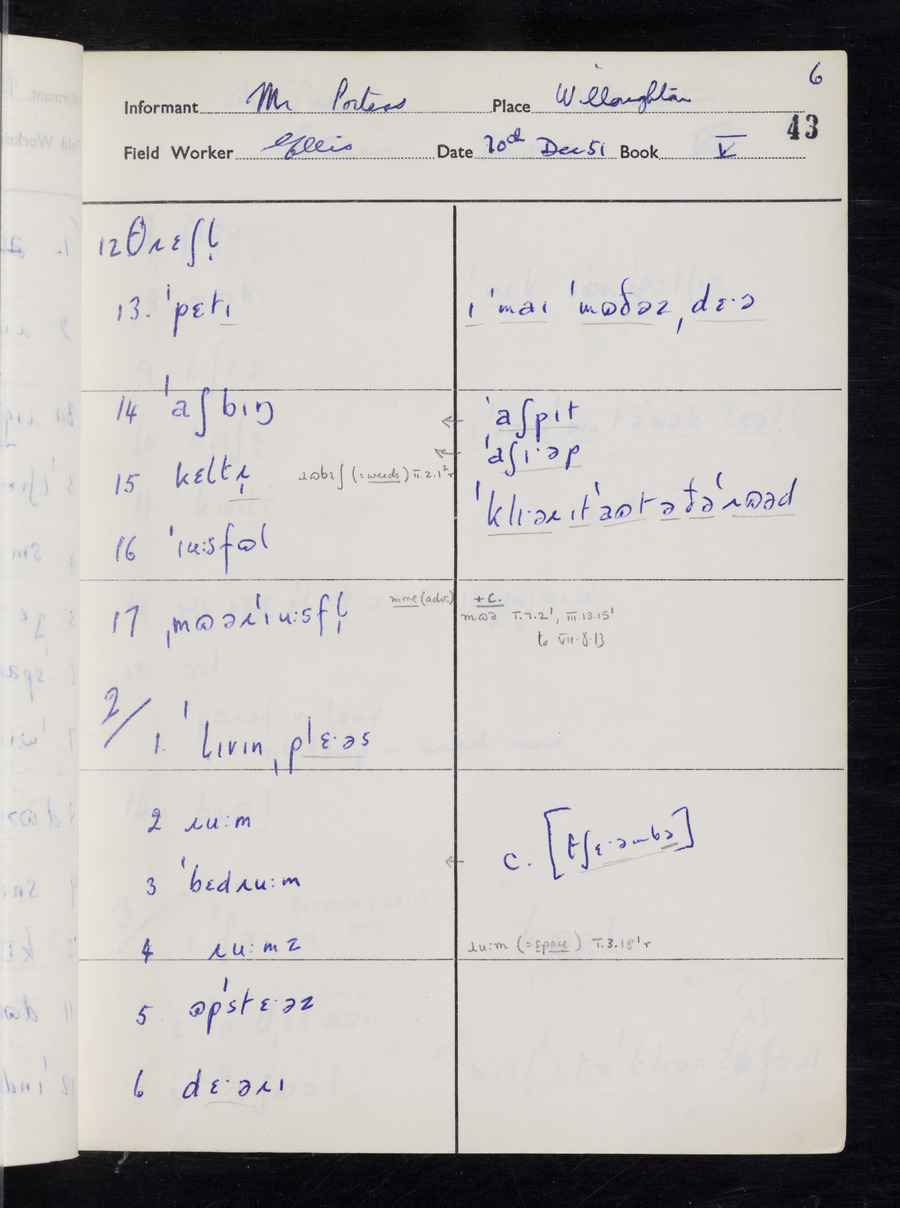 6
Informant Mr Porteas Place Willoughton
43
Field Worker Ellis Date 20th Dec 51 Book V
12 θɹɛʃl̩
13. ˈpɛtɪ
ɪ ˈmaɪ ˈmɒðəz ˌdɛ·ə
14 ˈaʃbɪŋ
← ˈaʃpɪt
← ˈaʃɪ·əp
15 kɛltɹ̩ ɹʊbɪʃ (= weeds) II.2.1²r
ˈklɪəɹ ɪt ˈaʊt ə ðə ˈɹɒəd
16 ˈɪu:sfəl
17 ˌmɒəɹˈɪu:sfl̩
more (adv.) + c.
mɒə I.7.2¹, III.13.15¹
to VII.8.13
2/
1. ˈlɪvɪn ˌplɛ·əs
2 ɹu:m
C. [tʃɛ·əmbə]
3 ˈbɛdɹu:m ←
4 ɹu:mz
ɹu:m (= space) I.3.18¹r
5 ɒpˈstɛ·əz
6 dɛ·əɹɪ